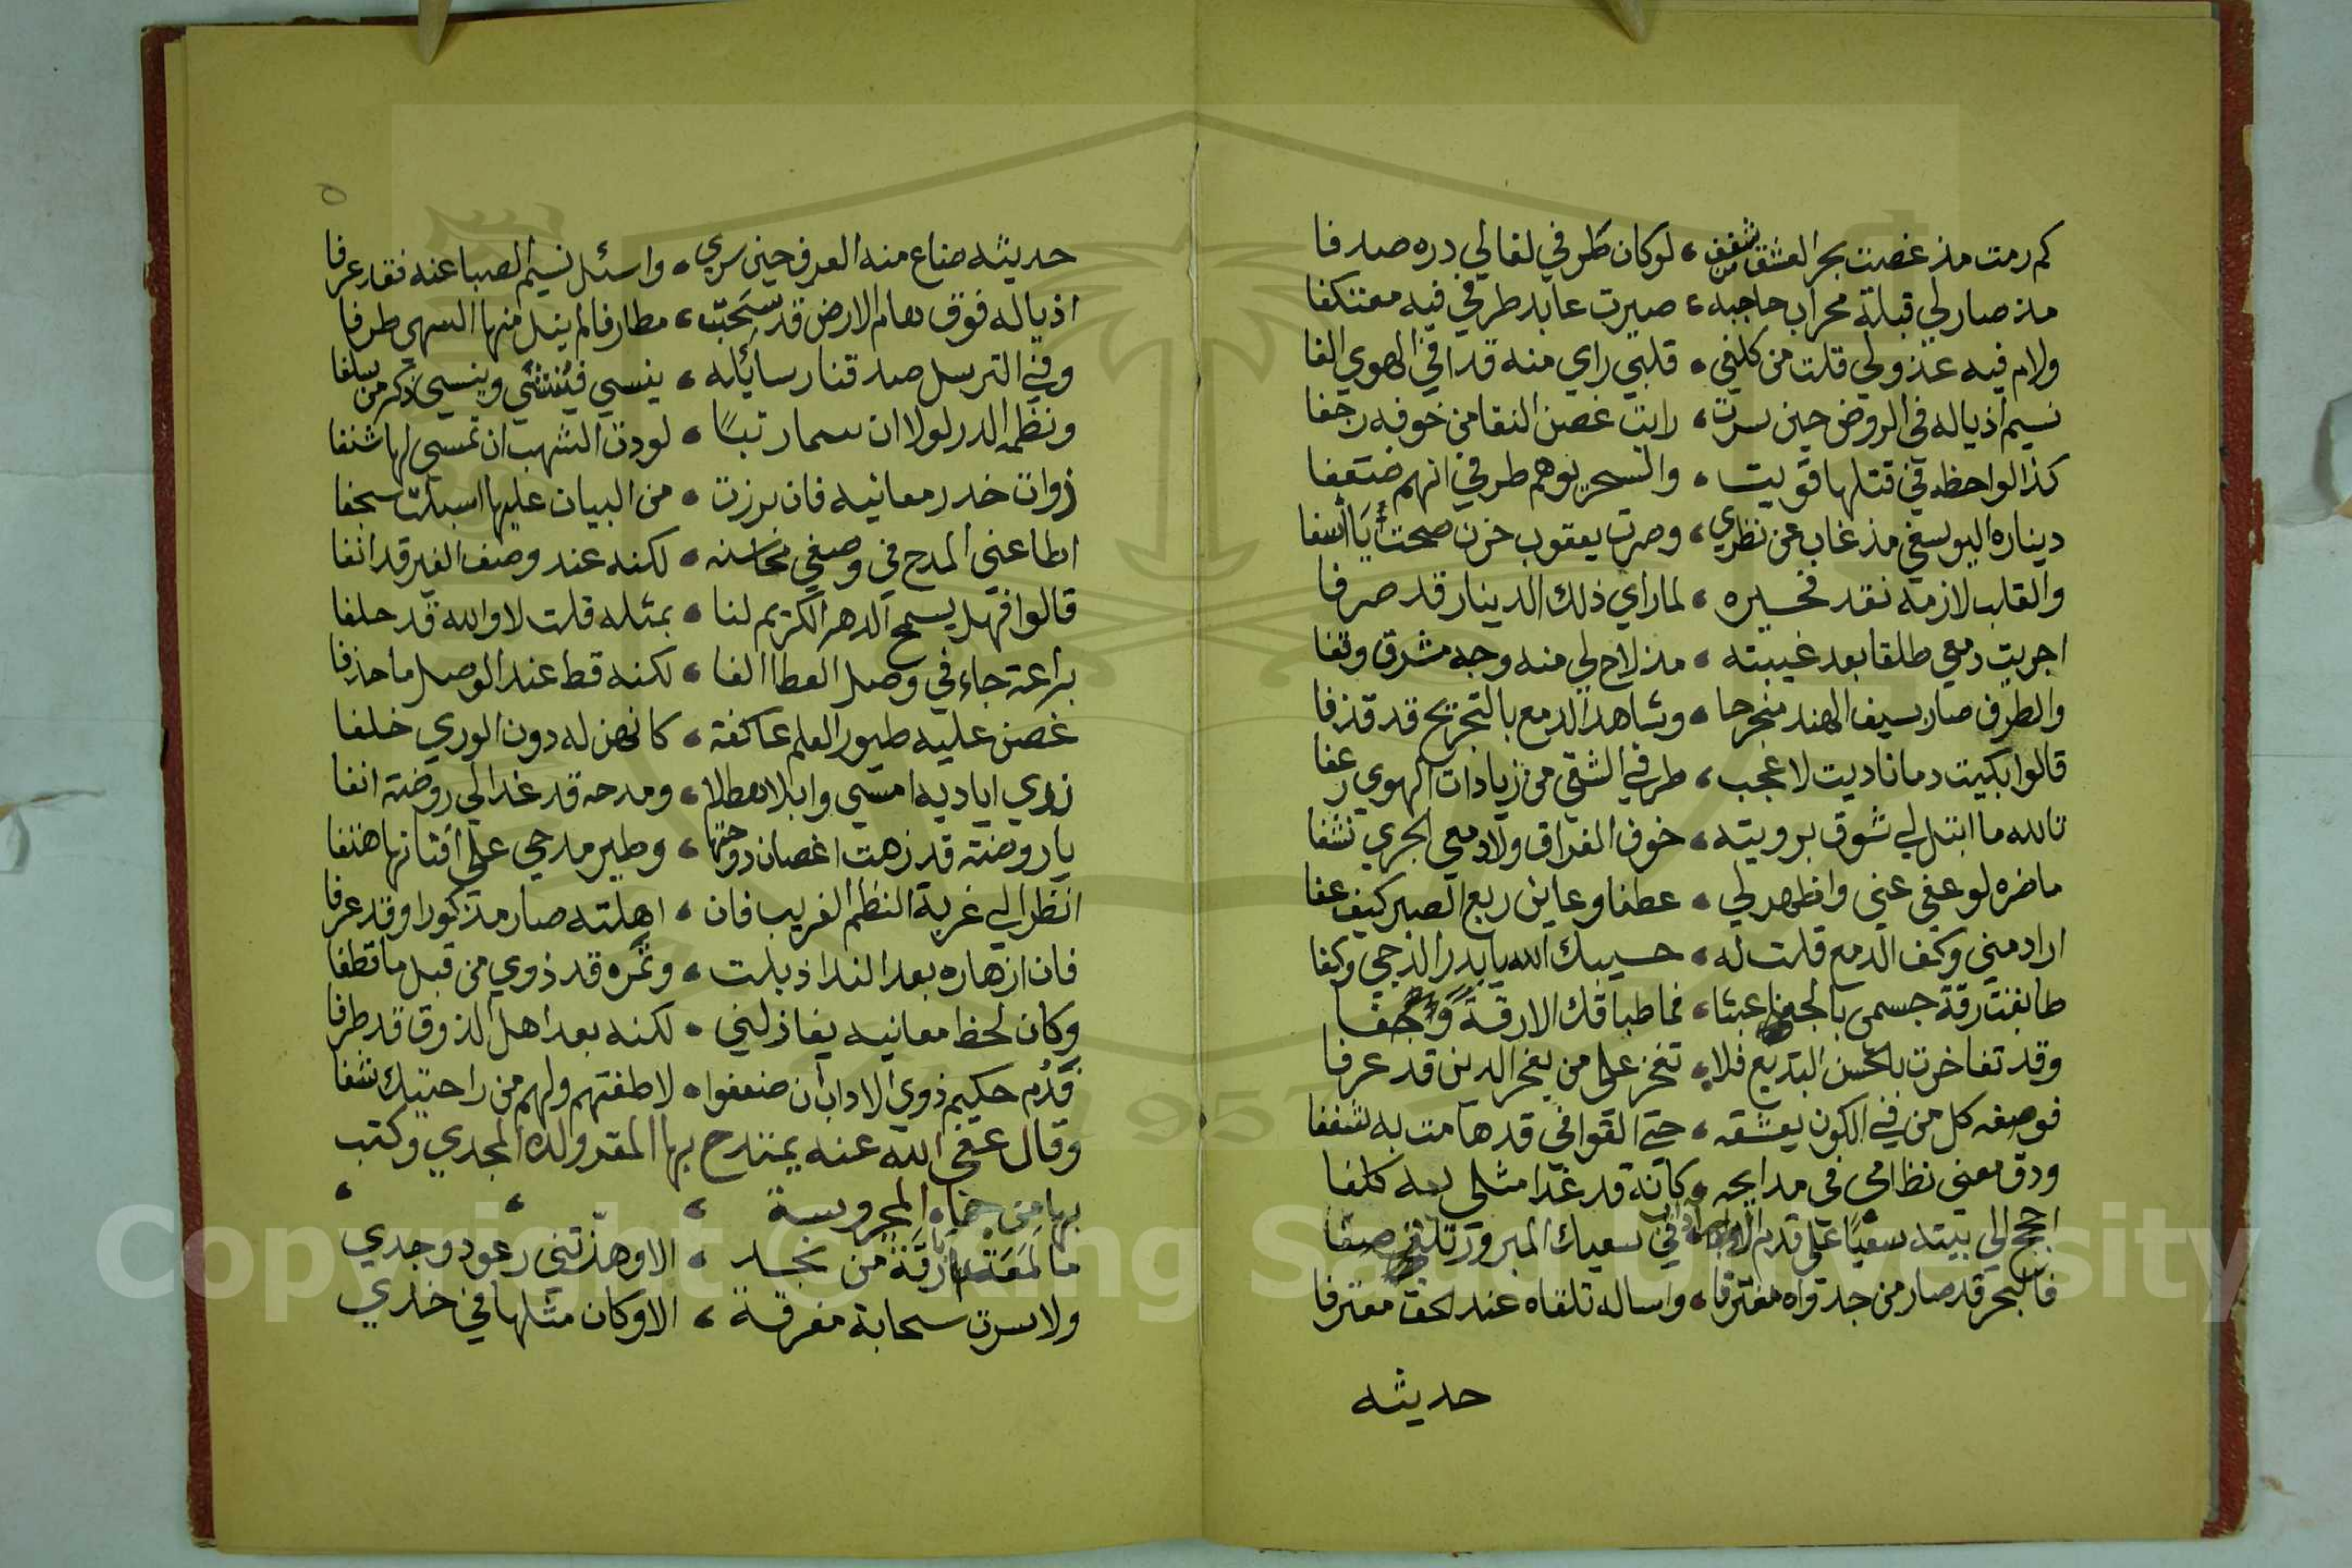 كم رمت مذ غصت بحر العشق من شغف ، لو كان طرفي لغالي دره صدفا
مذ صار لي قبلة محراب حاجبه ، صيرت عابد طرفي فيه معتكفا
ولام فيه عذولي قلت من كلفي ، قلبي راي منه قدا في الهوي الفا
نسيم اذياله في الروض حين سرت ، رايت غصن النقا من خوفه رجفا
كذا لواحظه في قتلها قويت ، والسحر يوهم طرفي انهم ضعفا
ديناره اليوسفي مذ غاب عن نظري ، وصرت يعقوب حزن صحت يا اسفا
والقلب لازمه نقد فحسيره ، لما راي ذلك الدينار قد صرفا
اجريت دمعي طلقا بعد غيبته ، مذ لاح لي منه وجه مشرق وقفا
والطرف صار بسيف الهند منجرحا ، وشاهد الدمع بالتجريح قد قذفا
قالوا بكيت دما ناديت لا عجب ، طرفي الشقي من زيادات الهوي رعفا
تالله ما ابتل لي شوق برويته ، خوف الفراق ولا دمعي الجري نشفا
ماضره لو عفي عني واظهر لي ، عطفا وعاين ربع الصبر كيف عفا
اراد مني وكف الدمع قلت له ، حسيبك الله يا بدر الدجي وكفا
طابقت رقة جسمي بالجفا عبثا ، فما طباقك الا رقة وجفا
وقد تفاخرت بالحسن البديع فلا ، تفخر علي من بفخر الدين قد عرفا
فوصفه كل من في الكون يعشقه ، حتي القوافي قد هامت به شغفا
ودق معني نظامي في مدايحه ، كانه قد غدا مثلي به كلفا
احجج الي بيته سعيا علي قدم الاداب في سعيك المبرور تلق صفا
فالبحر قد صار من جدواه مغترفا ، واساله تلقاه عند الحق معترفا
حديثه
٥
حديثه ضاع منه العرف حين سري ، واسئل نسيم الصبا عنه فقد عرفا
اذياله فوق هام الارض قد سحبت ، مطارفا لم ينل منها السهي طرفا
وفي الترسل صدقنا رسائله ، ينسي فينتشي وينسي ذكر من سلفا
ونظمه الدر لولا ان سما رتبا ، لودت الشهب ان تمسي لها شنفا
ذوات خدر معانيه فان برزت ، من البيان عليها اسبلت سجفا
اطاعني المدح في وصفي محاسنه ، لكنه عند وصف الغير قد انفا
قالوا فهل يسمح الدهر الكريم لنا ، بمثله قلت لا والله قد حلفا
براعة جاء في وصل العطا الفا ، لكنه قط عند الوصل ما حذفا
غصن عليه طيور العلم عاكفة ، كانهن له دون الوري خلفا
ندي اياديه امسي وابلا هطلا ، ومدحه قد غدا لي روضة انفا
يا روضة قد زهت اغصان دوحتها ، وطير مدحي علي افنانها هتفا
انظر الي غربة النظم الغريب فان ، اهلته صار مذكورا وقد عرفا
فان ازهاره بعد الندا ذبلت ، وثمره قد ذوي من قبل ما قطفا
وكان لحظ معانيه يغازلني ، لكنه بعد اهل الذوق قد طرفا
قدم حكيم ذوي الاداب ان ضعفوا ، لاطفتهم ولهم من راحتيك شفا
وقال عفي الله عنه يمتدح بها المقر ولده المجدي وكتب
بها من حماه المحروسة
ما لمعت بارقة من نجد ، الا وهزتني رعود وجدي
ولا سرت سحابة مغرقة ، الا وكان مثلها في خدي